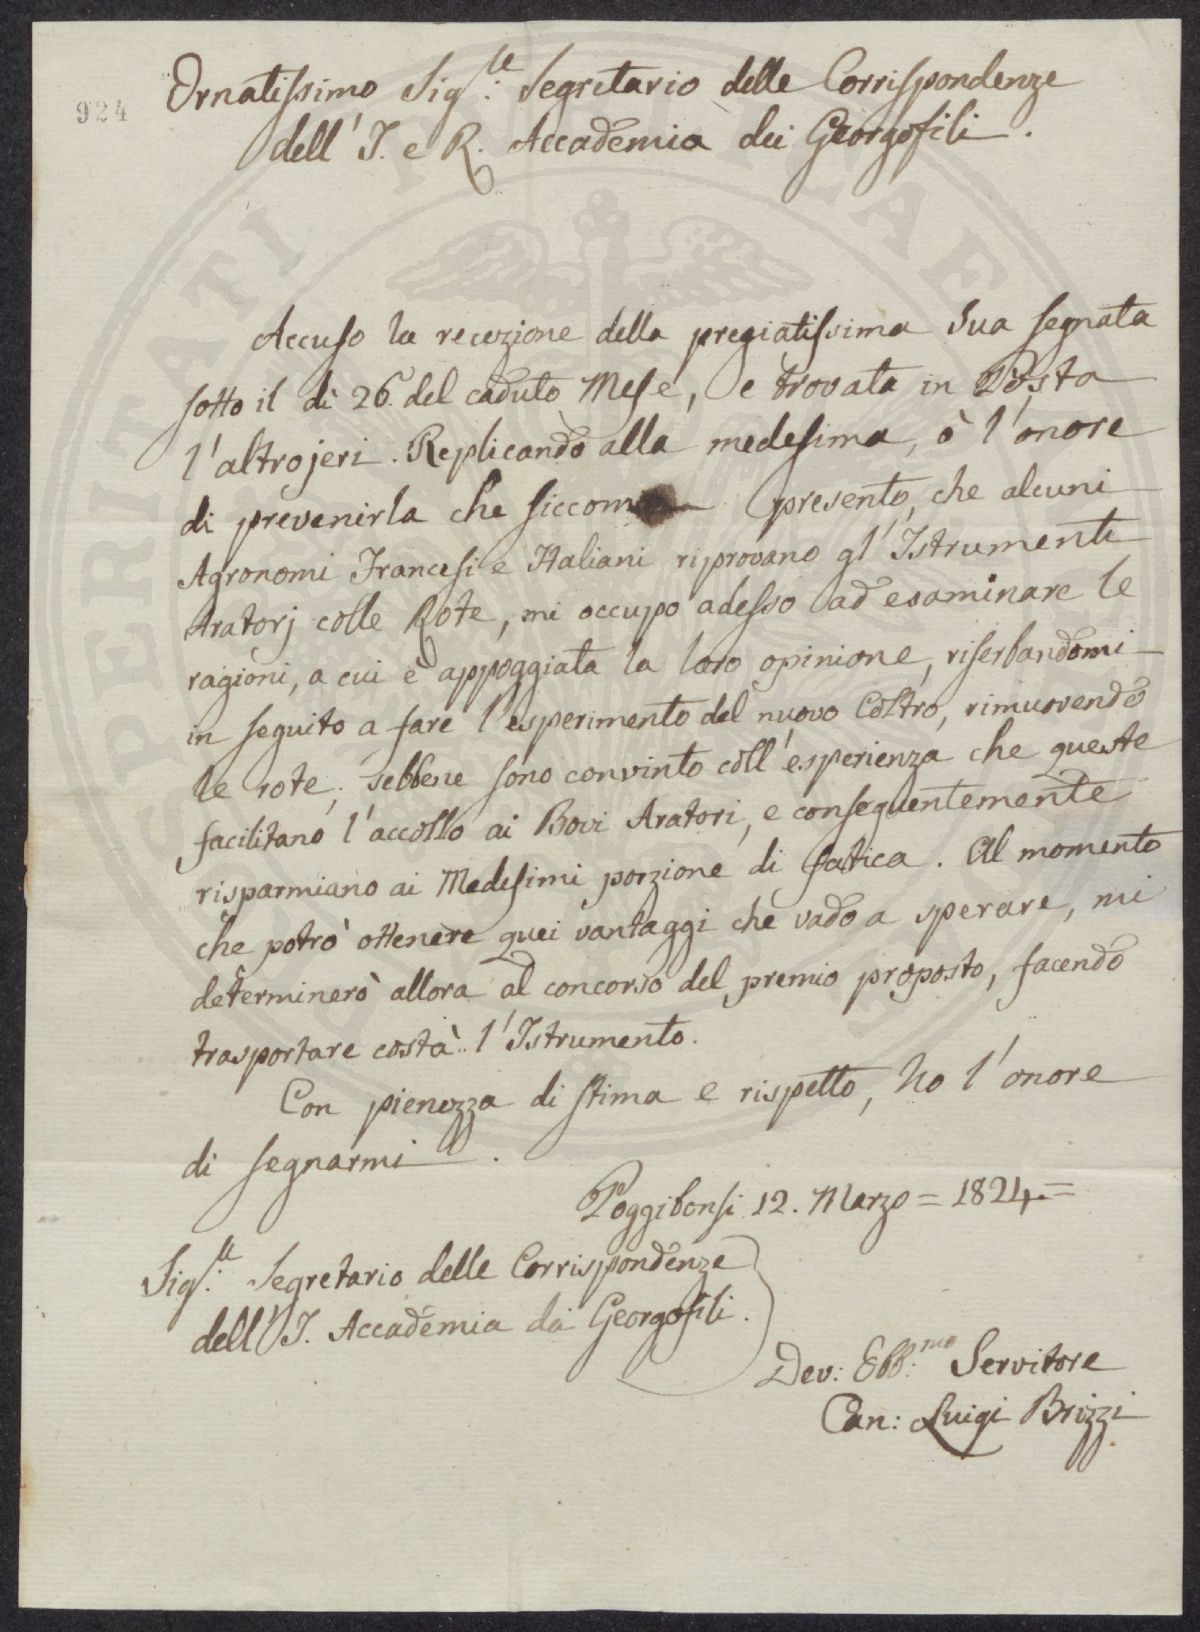 924
Ornatissimo Sig.re Segretario delle Corrispondenze
dell' I. e R. Accademia dei Georgofili.
Accuso la recezione della pregiatissima Sua segnata
sotto il di 26. del caduto Mese, e trovata in Posta
l'altrojeri. Replicando alla medesima, ò l'onore
di prevenirla che siccome presento, che alcuni
Agronomi Francesi e Italiani riprovano gl' Istrumenti
Aratorj colle Rote, mi occupo adesso ad esaminare le
ragioni, a cui è appoggiata la loro opinione, riserbandomi
in seguito a fare l'esperimento del nuovo Coltro, rimuovendo
le rote; sebbene sono convinto coll'esperienza che queste
facilitano l'accollo ai Bovi Aratori, e conseguentemente
risparmiano ai Medesimi porzione di fatica. Al momento
che potrò ottenere quei vantaggi che vado a sperare, mi
determinerò allora al concorso del premio proposto, facendo
trasportare costà l'Istrumento.
Con pienezza di stima e rispetto, ho l'onore
di segnarmi.
Poggibonsi 12. Marzo = 1824 =
Sig.re Segretario delle Corrispondenze
dell' I. Accademia dei Georgofili.
Dev: Obb:mo Servitore
Can: Luigi Brizzi
PERITATI